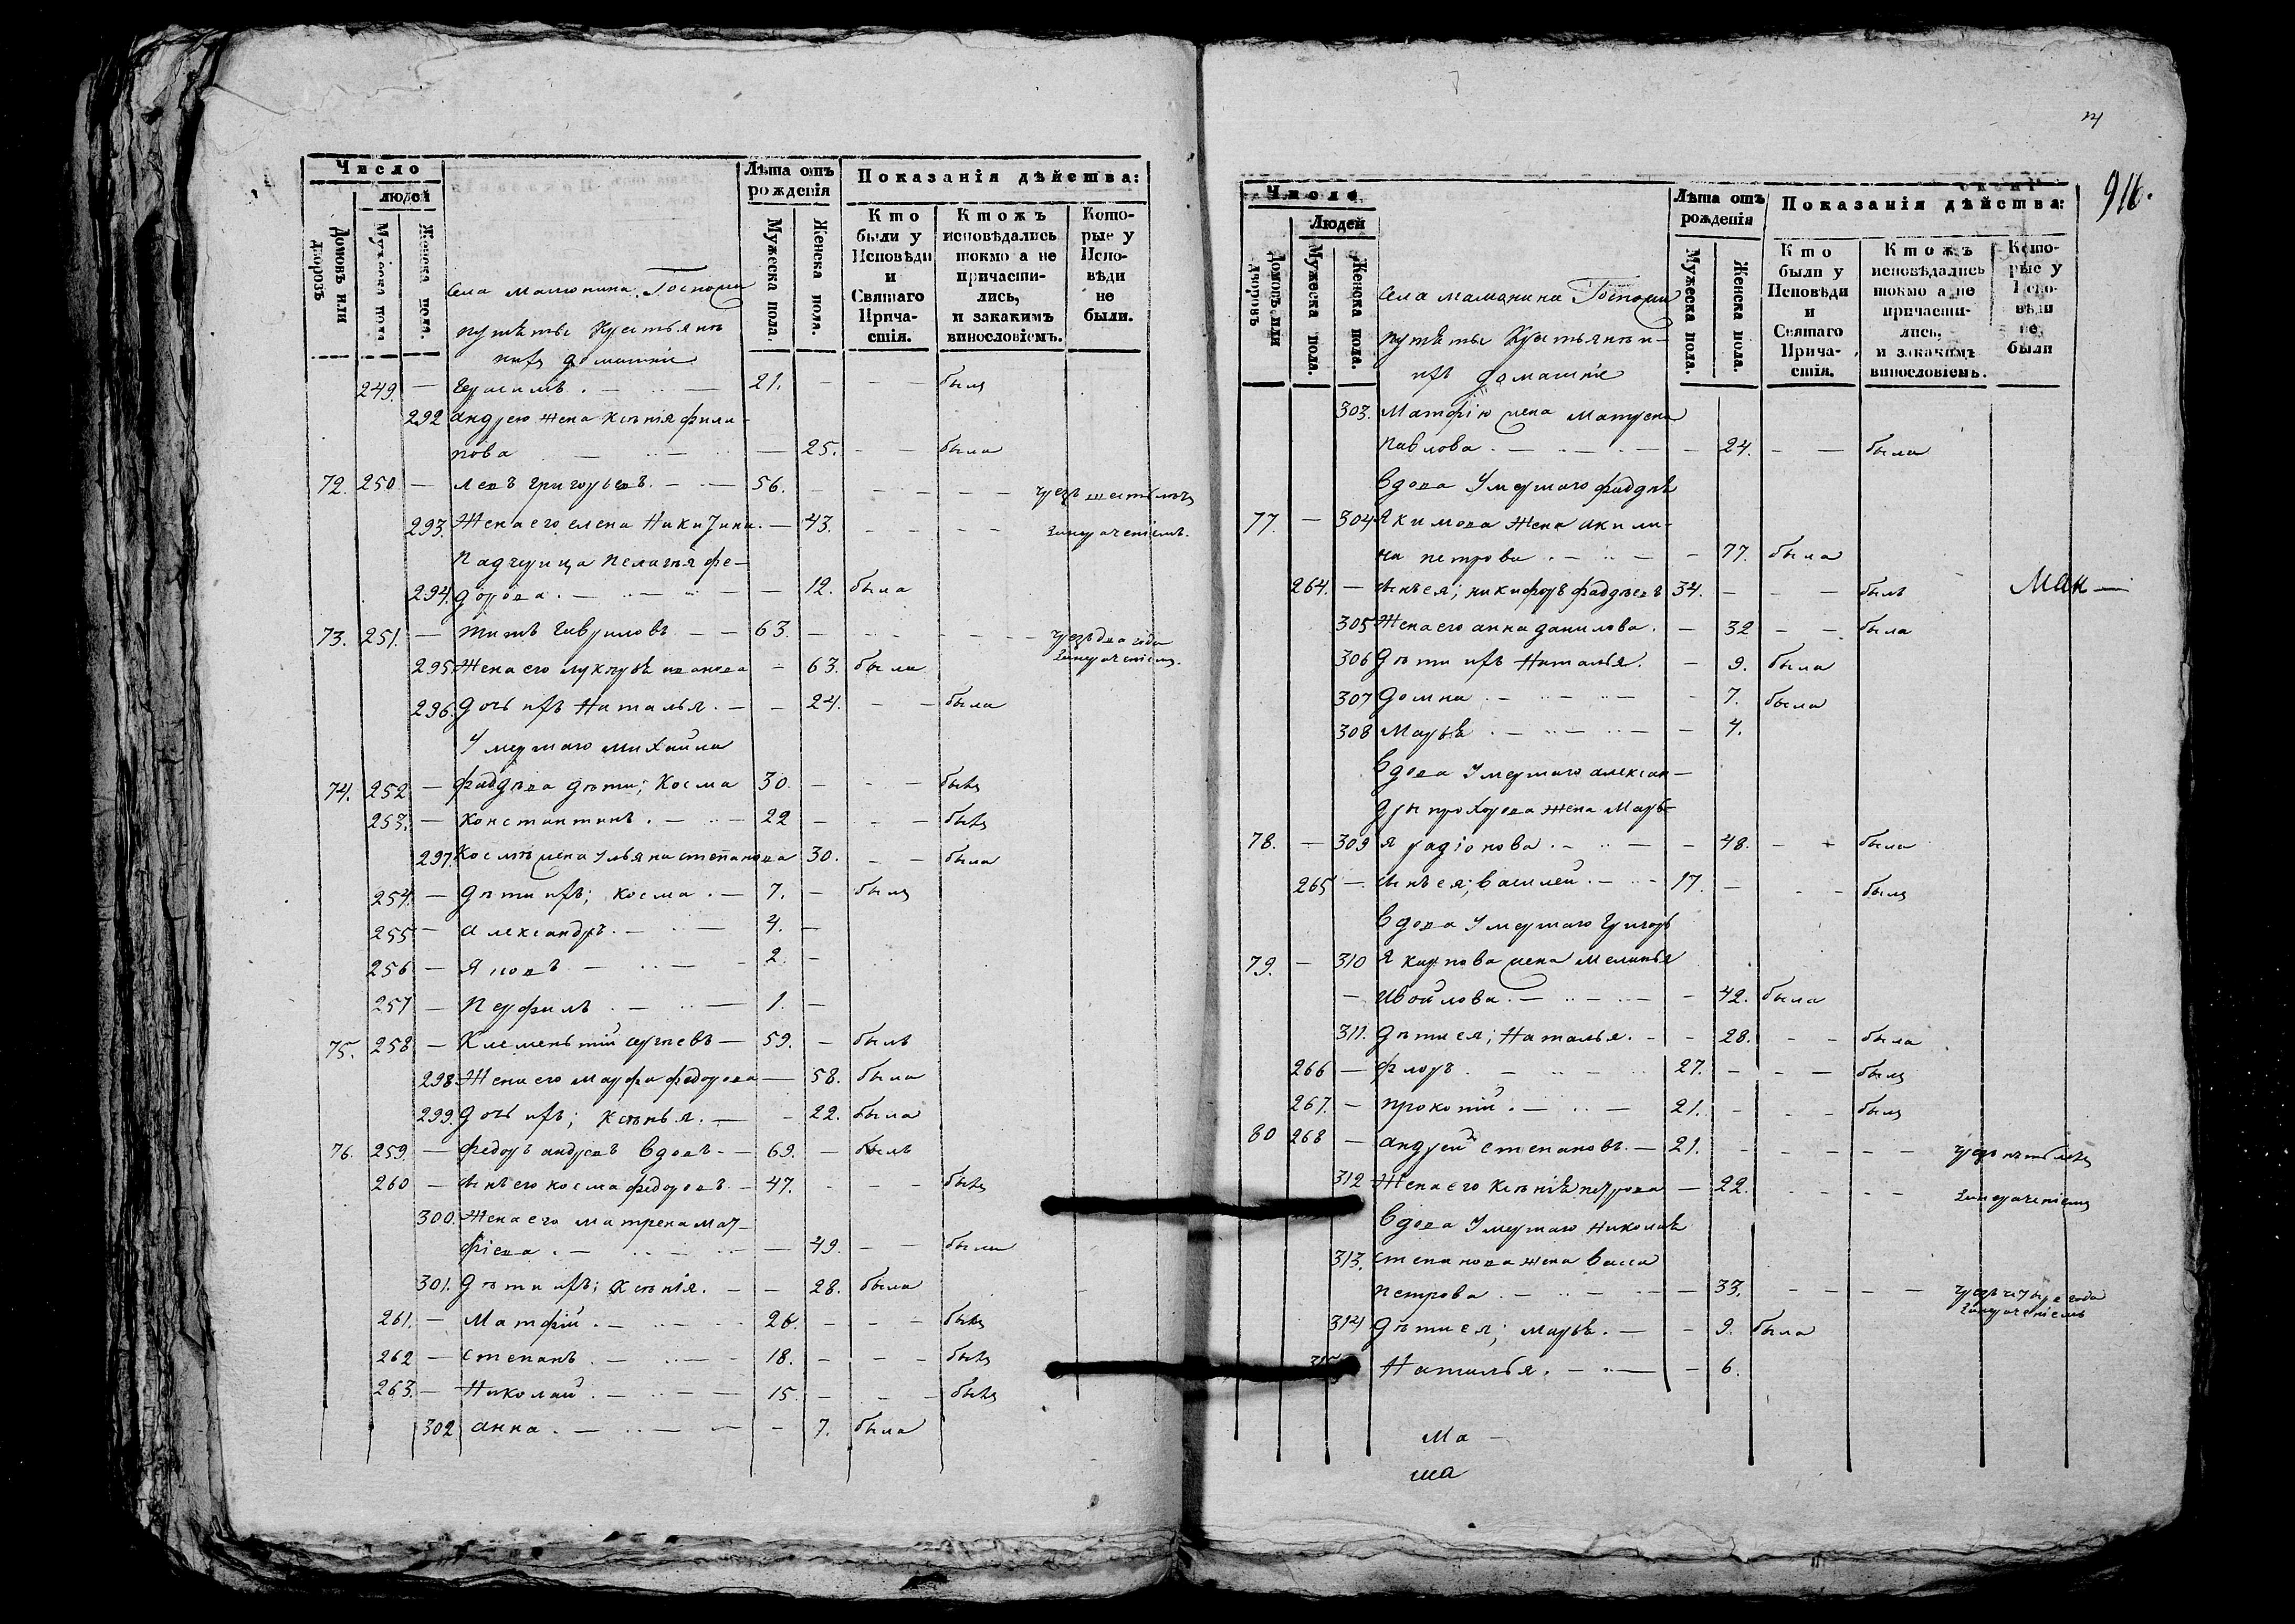 Число
людей
Домовъ или дворовъ
Мужеска пола
Женска пола.
Лѣта отъ рожденія
Мужеска пола.
Женска пола.
Показанія дѣйства:
Кто были у Исповѣди и Святаго Причастія.
Ктожъ исповѣдались токмо а не причастились, и закакимъ винословіемъ.
Которые у Исповѣди не были.
249. — Герасимъ. — 21. — — — былъ
292 андрею жена ксенія фили-
пова — 25. — — была
72. 250 — левъ григорьевъ. — 56. — — — — чрезъ шесть лѣтъ
293. Жена его елена Никитина. — 43. — — — — занерачениемъ.
Падчерица пелагѣя фе-
294. дорова. — 12. была
73. 251. — титъ гавриловъ — — 63. — — — — чрезъ два года
занерачениемъ.
295 Жена его лукерья иванова — 63. была
296. дочь ихъ Наталья. — — 24. — — была
Умершаго михайла
74. 252 — фаддѣева дѣти; Косма 30. — — — былъ
253. — Константинъ. — 22 — — — былъ
297. Космѣ жена ульяна степанова 30. — — была
254. — дѣти ихъ; косма. — 7. — былъ
255 — александръ. — 4. —
256 — Яковъ — 2. —
257 — Перфилъ — 1. —
75. 258 — Климентий сергѣевъ — 59. — былъ
298. Жена его марфа федорова — 58. была
299. дочь ихъ; ксенья. — — 22. была
76. 259 — федоръ андреевъ вдовъ. — 69. — былъ
260 — сынъ его косма федоровъ. — 47. — — — былъ
300. Жена его матрена мат-
фіева. — 49. — — была
301. дѣти ихъ; ксенія. — — 28. была
261. — Матфій. — 26. — — — былъ
262 — степанъ. — 18. — — — былъ
263. — Николай. — 15. — — — былъ
302 анна. — — 7. была
916.
Число
Людей
Домовъ или дворовъ
Мужеска пола.
Женска пола.
Лѣта отъ рожденія
Мужеска пола.
Женска пола.
Показанія дѣйства:
Кто были у Исповѣди и Святаго Причастія.
Ктожъ исповѣдались токмо а не причастились, и закакимъ винословіемъ.
Которые у Исповѣди не были
ихъ домашніе
303. Матфію жена матрена
павлова. — 24. — — была
вдова Умершаго фаддѣя
77. — 304 Якимова жена акили-
на петрова. — 77. была
264. — сынъ ея; никифоръ фаддѣевъ 34. — — — былъ
305 Жена его анна данилова. — 32 — — была
306 дѣти ихъ Наталья. — 9. была
307 домна — 7. была
308 Марья. — 4.
вдова Умершаго алексан-
дры прохорова жена Марь-
78. — 309 я радіонова. — 48. — — была
265 — сынъ ея; василей. — 17. — — — былъ
вдова Умершаго Григорь
79. — 310 я карпова жена меланья
— 42. была
311. дѣти ея; Наталья. — 28. — — была
266 — флоръ. — 27. — — — былъ
267. — прокопий. — 21. — — — былъ
80 268 — андрей степановъ. — 21. — — — —
312 Жена его ксенія петрова — 22. — — — — занерачениемъ
вдова Умершаго николая
313. степанова жена васса
петрова. — 33. — — — — чрезъ четыре года
занерачениемъ
314 дѣти ея; марья. — 9. была
315 Наталья. — 6.